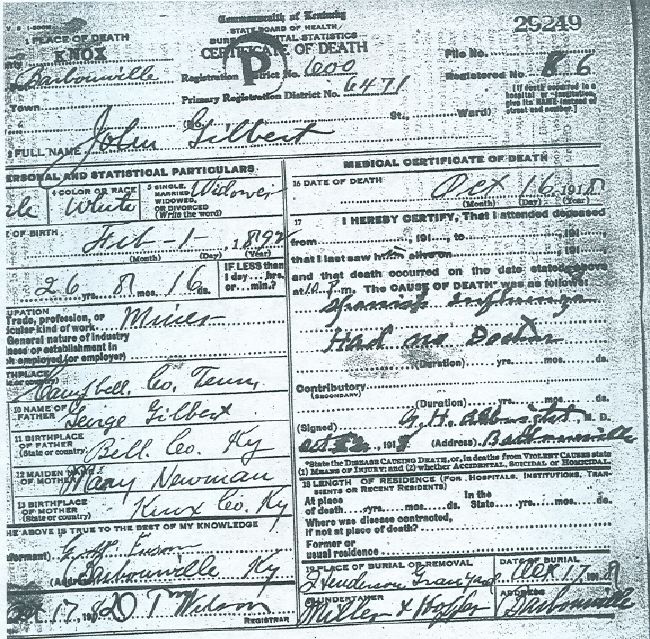 Commonwealth of Kentucky
STATE BOARD OF HEALTH
BUREAU VITAL STATISTICS
CERTIFICATE OF DEATH
25249
PLACE OF DEATH
KNOX
Barbourville
Registration District No. 600
File No.
Primary Registration District No. 6471
Registered No. 86
Town
(No.
St.,
Ward)
[If death occurred in a
hospital or institution,
give its NAME instead of
street and number.]
FULL NAME John Gilbert
PERSONAL AND STATISTICAL PARTICULARS
4 COLOR OR RACE White
5 SINGLE, MARRIED, WIDOWED, OR DIVORCED (Write the word) Widower
OF BIRTH Feb - 1 - , 1892
(Month) (Day) (Year)
26 yrs. 8 mos. 16 ds.
IF LESS than
1 day... hrs.
or... min.?
UPATION
Trade, profession, or
cular kind of work Miner
General nature of industry
ness or establishment in
employed (or employer)
THPLACE
Campbell. Co. Tenn.
10 NAME OF
FATHER George Gilbert
11 BIRTHPLACE
OF FATHER
(State or country) Bell. Co. Ky
12 MAIDEN NAME
OF MOTHER Mary Newman
13 BIRTHPLACE
OF MOTHER
(State or country) Knox Co. Ky
HE ABOVE IS TRUE TO THE BEST OF MY KNOWLEDGE
(Address) Barbourville Ky
17, 191
REGISTRAR
MEDICAL CERTIFICATE OF DEATH
16 DATE OF DEATH
Oct 16, 1918
(Month) (Day) (Year)
17 I HEREBY CERTIFY, That I attended deceased
from, 191, to, 191
that I last saw him alive on, 191
and that death occurred on the date stated above
at 10 P m. The CAUSE OF DEATH* was as follows:
Spanish Influenza
Had no Doctor
(Duration) yrs. mos. ds.
Contributory
(SECONDARY)
(Duration) yrs. mos. ds.
(Signed) M. D.
, 1918 (Address) Barbourville
*State the DISEASE CAUSING DEATH, or, in deaths from VIOLENT CAUSES state
(1) MEANS OF INJURY; and (2) whether ACCIDENTAL, SUICIDAL or HOMICIDAL
18 LENGTH OF RESIDENCE (FOR HOSPITALS, INSTITUTIONS, TRAN-
SIENTS OR RECENT RESIDENTS)
At place
of death yrs. mos. ds.
In the
State yrs. mos. ds.
Where was disease contracted,
if not at place of death?
Former or
usual residence
19 PLACE OF BURIAL OR REMOVAL
Henderson Graveyard
DATE OF BURIAL
Oct 17 1918
UNDERTAKER
Miller &
ADDRESS
Barbourville